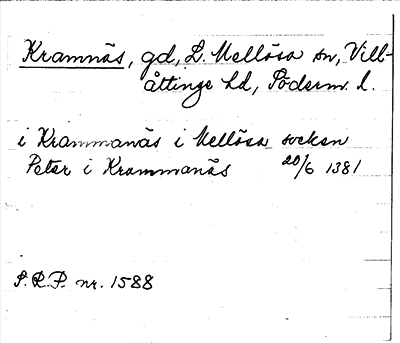 Kramnäs, gd, L. Mellösa sn, Vill-
åttinge hd, Söderm. l.
i Krammanäs i Mellösa socken
Peter i Krammanäs 20/6 1381
S.R.P. nr. 1588